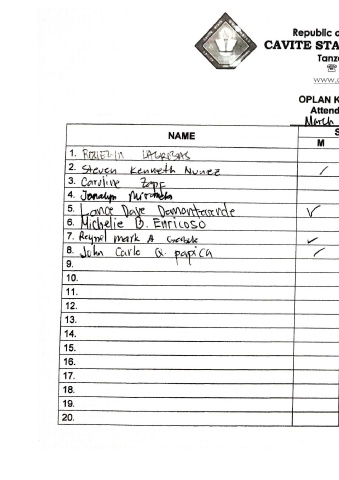 Republic o
CAVITE STA
Tanz
☏
www.c
OPLAN K
Attend
March
NAME S
M
1.
2. Steven Kenneth Nunez ✓
3. Caroline
4. Jonalyn
5. Lance Dave Damonfaronde ✓
6. Michelle D. Enricoso
7. Reymel mark A ✓
8. John Carlo Q. papica ✓
9.
10.
11.
12.
13.
14.
15.
16.
17.
18.
19.
20.